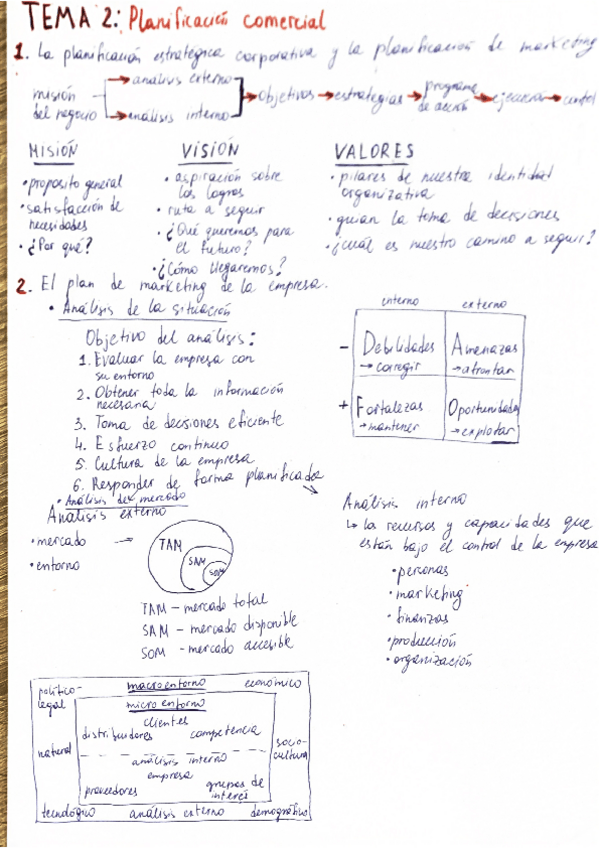 TEMA 2: Planificación comercial
1. La planificación estratégica corporativa y la planificación de marketing
misión del negocio → análisis externo → análisis interno → objetivos → estrategias → programa de acción → ejecución → control
MISIÓN
• proposito general
• satisfacción de
necesidades
• ¿Por qué?
VISIÓN
• aspiración sobre
los logros
• ruta a seguir
• ¿Qué queremos para
el futuro?
• ¿Cómo llegaremos?
VALORES
• pilares de nuestra identidad
organizativa
• guían la toma de decisiones
• ¿cuál es nuestro camino a seguir?
2. El plan de marketing de la empresa.
• Análisis de la situación
Objetivo del análisis:
1. Evaluar la empresa con
su entorno
2. Obtener toda la información
necesaria
3. Toma de decisiones eficiente
4. Esfuerzo continuo
5. Cultura de la empresa
6. Responder de forma planificada
interno externo
- Debilidades Amenazas
→ corregir → afrontar
+ Fortalezas Oportunidades
→ mantener → explotar
• Análisis del mercado
Análisis externo
• mercado →
• entorno
TAM
SAM
SOM
TAM - mercado total
SAM - mercado disponible
SOM - mercado accesible
Análisis interno
↳ los recursos y capacidades que
están bajo el control de la empresa
• personas
• marketing
• finanzas
• producción
• organización
político-legal macroentorno económico
micro entorno
clientes
distribuidores competencia
natural análisis interno socio-cultural
empresa
proveedores grupos de interés
tecnológico análisis externo demográfico